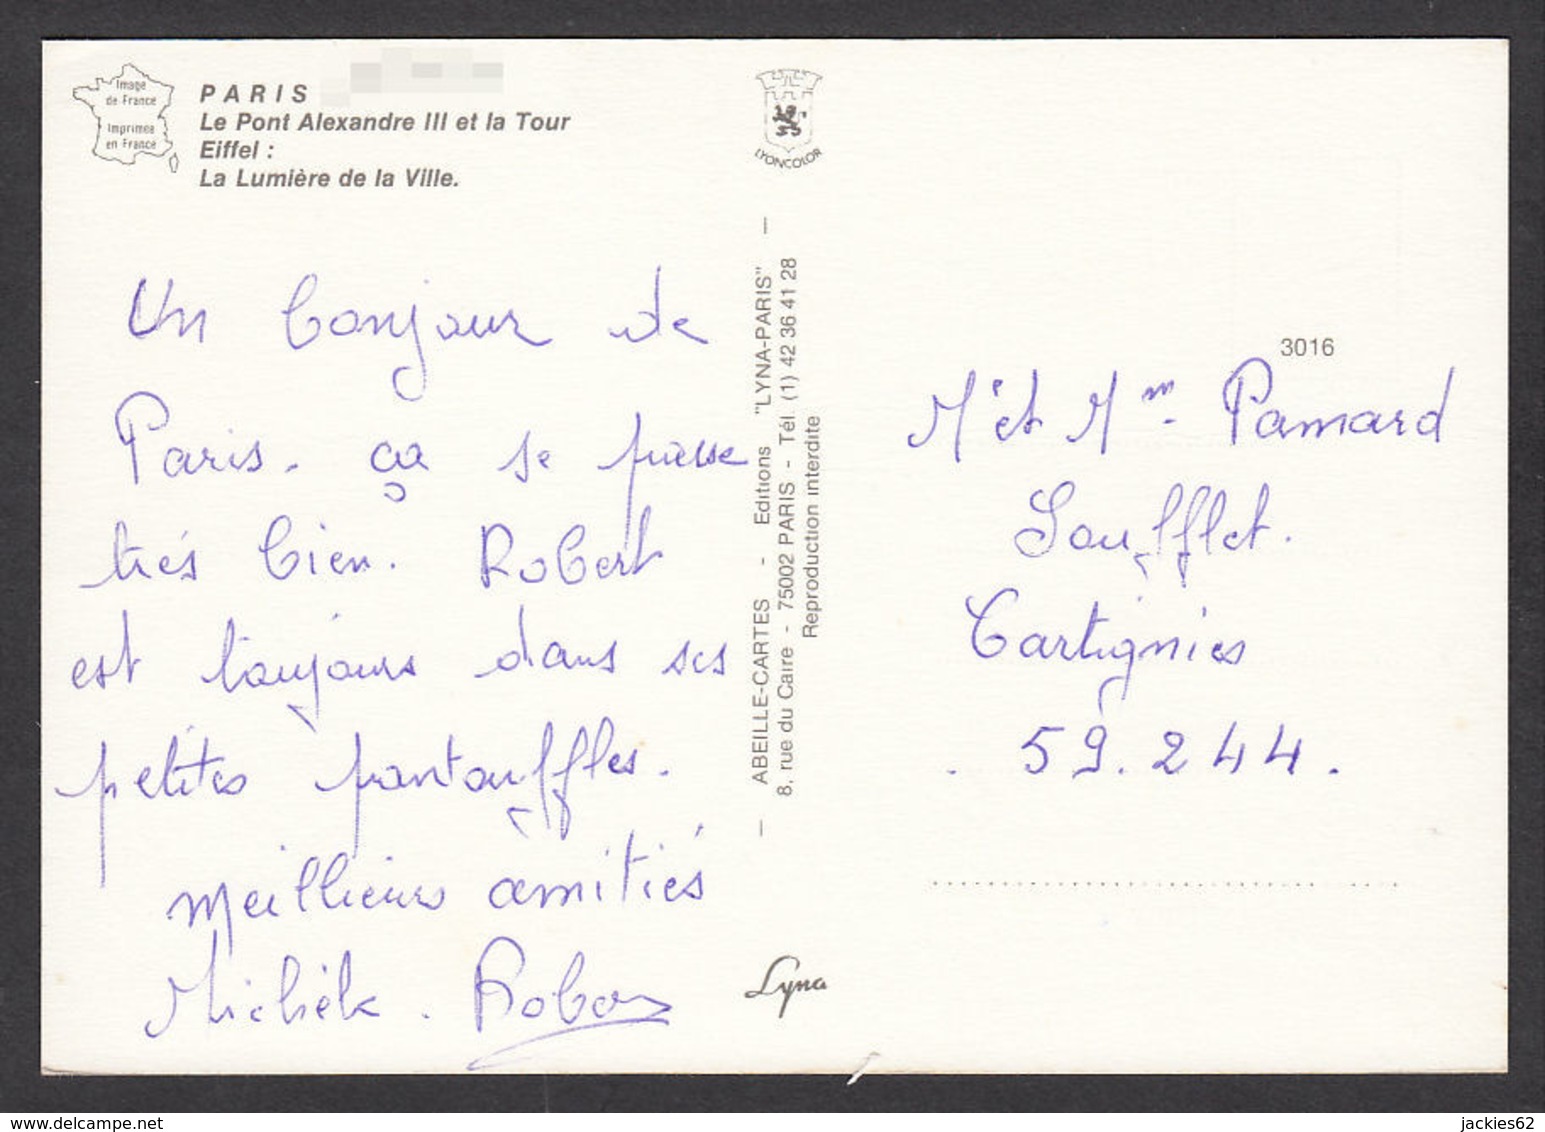 Image
de France
Imprimée
en France
PARIS
Le Pont Alexandre III et la Tour
Eiffel :
La Lumière de la Ville.
Un bonjour de
Paris. ça se passe
trés bien. Robert
est toujours dans ses
petites pantouffles.
meillieurs amitiés
Michèle. Robert
LYONCOLOR
— ABEILLE-CARTES - Editions "LYNA-PARIS" —
8, rue du Caire - 75002 PARIS - Tél. (1) 42 36 41 28
Reproduction interdite
Lyna
3016
Mr et Mm. Pamard
Soufflet.
Cartignies
. 59.244.
delcampe.net
jackies62